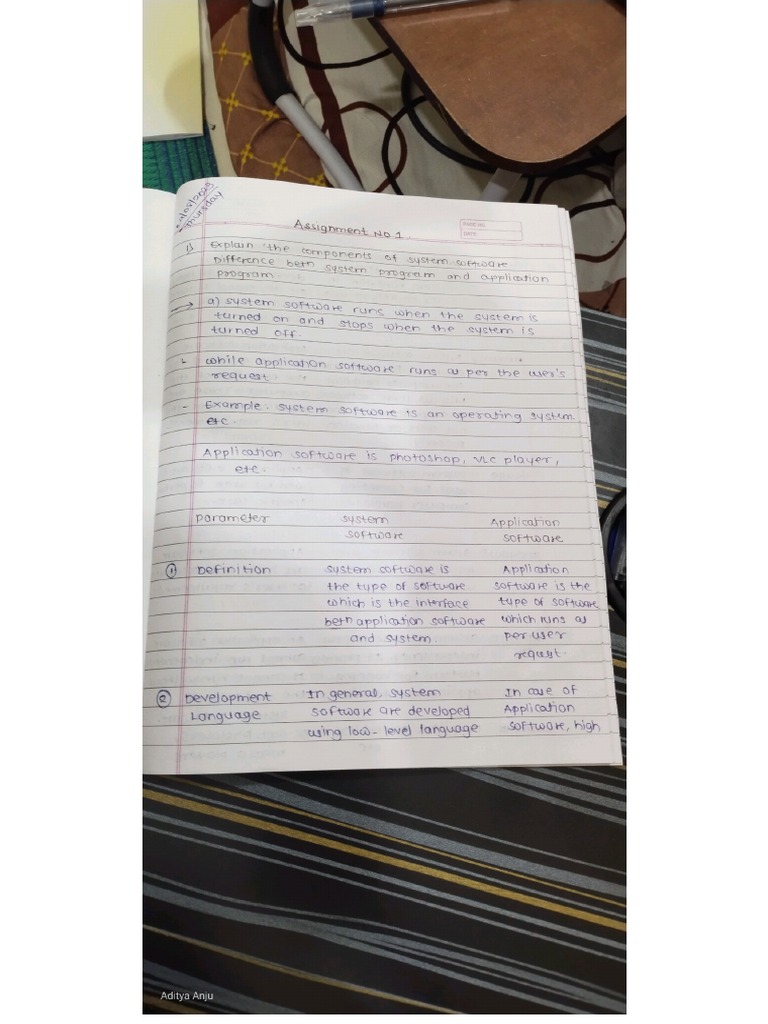 Thursday
Assignment No 1.
PAGE NO.
DATE
1) Explain the components of system software
Difference betn system program and application
program.
→ a) system software runs when the system is
turned on and stops when the system is
turned off.
- while application software runs as per the user's
request.
- Example. system software is an operating system
etc.
Application software is photoshop, VLC player,
etc.
parameter system Application
software software
① Definition system software is Application
the type of software software is the
which is the interface type of software
betn application software which runs as
and system. per user
request.
② Development In general, system In case of
Language software are developed Application
using low-level language software, high
Aditya Anju